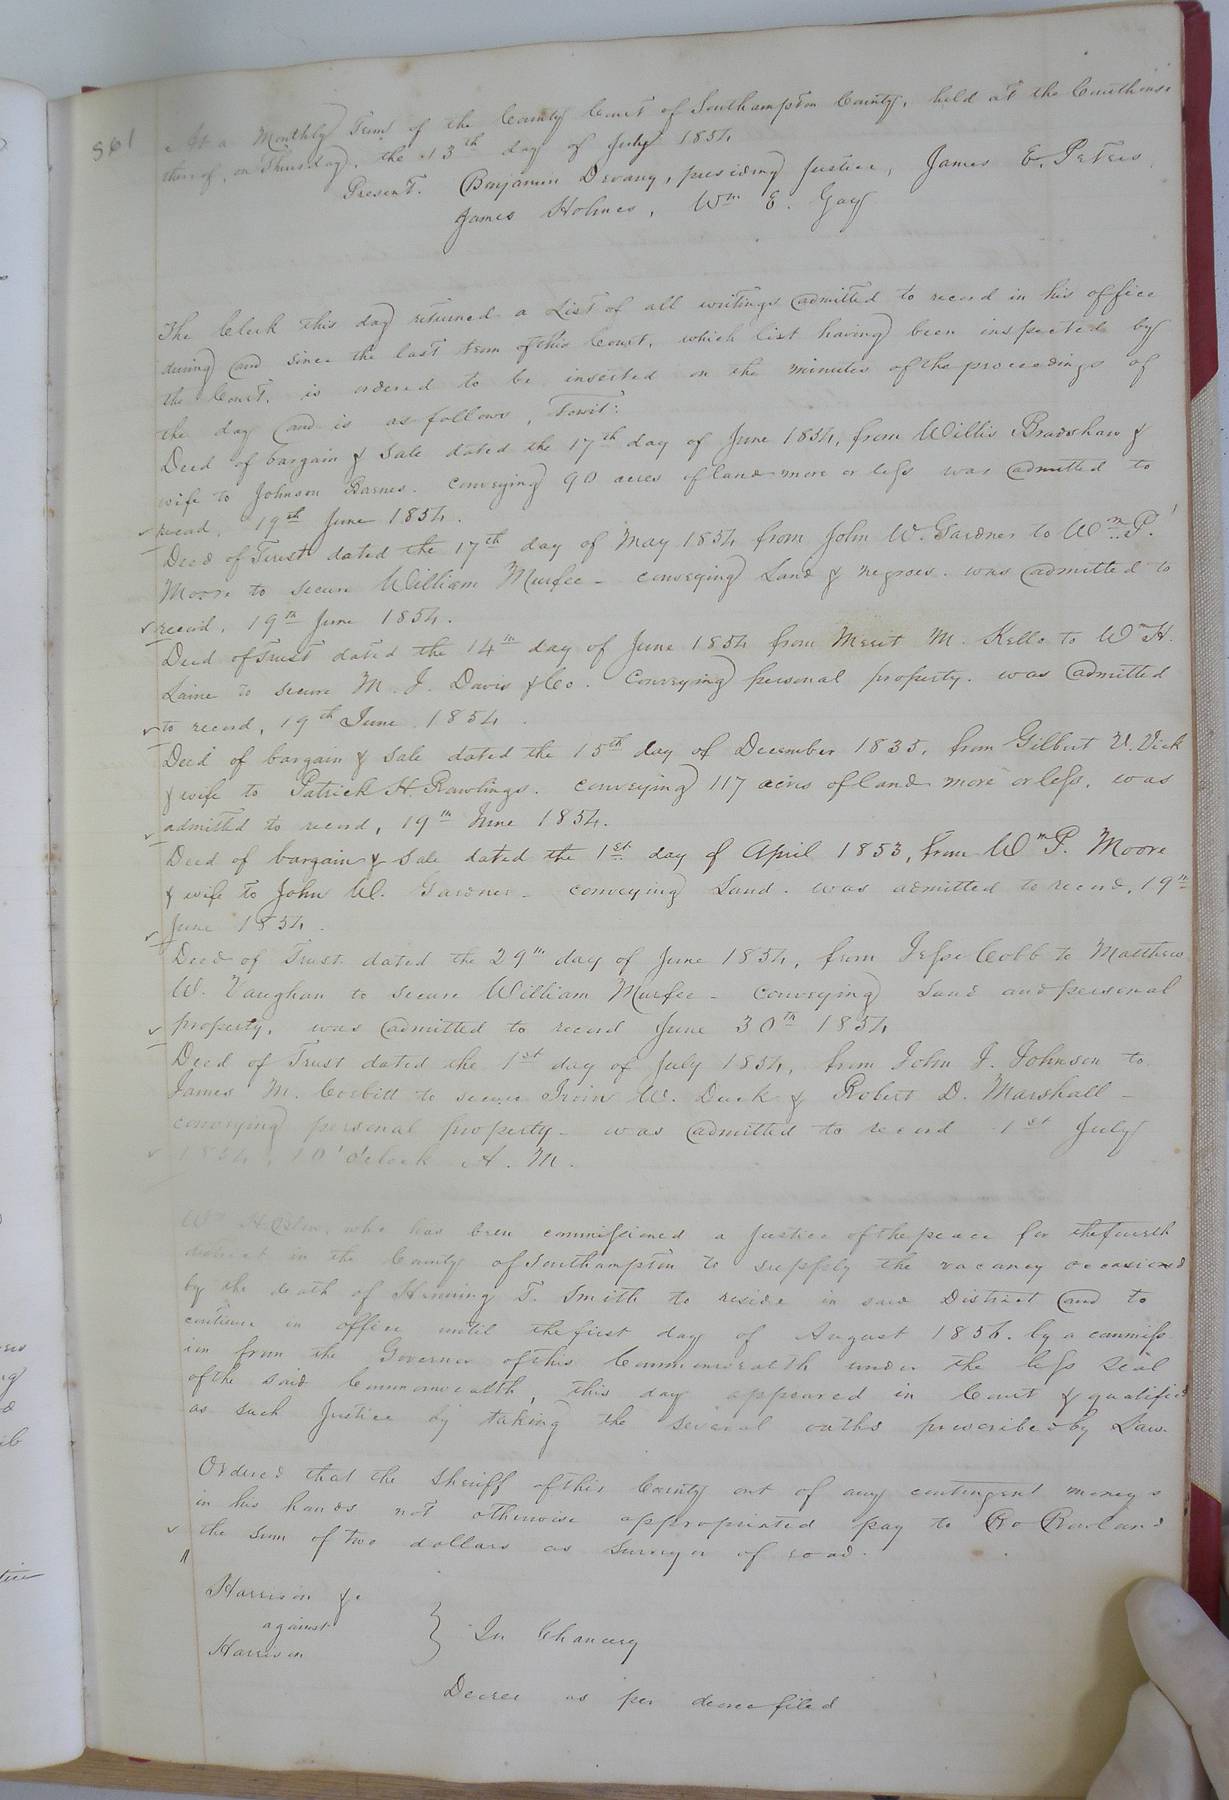 561
At a Monthly Term of the County Court of Southampton County, held at the Courthouse
thereof, on Thursday, the 13th day of July 1854
Present. Benjamin Devany, presiding Justice, James E. Peters,
James Holmes, Wm E. Gay
The Clerk this day returned a List of all writings admitted to record in his office
during and since the last term of this Court, which list having been inspected by
the Court, is ordered to be inserted on the minutes of the proceedings of
the day and is as follows, Towit:
Deed of bargain & Sale dated the 17th day of June 1854, from Willis Bradshaw &
wife to Johnson Barnes. conveying 90 acres of land more or less was admitted to
record, 19th June 1854.
Deed of Trust dated the 17th day of May 1854 from John W. Gardner to Wm P.
Moore to secure William Murfee - conveying Land & negroes. was admitted to
record, 19th June 1854.
Deed of Trust dated the 14th day of June 1854 from Merit M. Kello to Wm H.
Laine to secure M. J. Davis & Co. Conveying personal property. was admitted
to record, 19th June 1854.
Deed of bargain & Sale dated the 15th day of December 1835, from Gilbert V. Vick
& wife to Patrick H. Rawlings. conveying 117 acres of land more or less, was
admitted to record, 19th June 1854.
Deed of bargain & Sale dated the 1st day of April 1853, from Wm P. Moore
& wife to John W. Gardner - conveying Land. was admitted to record, 19th
June 1854.
Deed of Trust dated the 29th day of June 1854, from Jesse Cobb to Matthew
W. Vaughan to secure William Murfee - conveying Land and personal
property, was admitted to record June 30th 1854
Deed of Trust dated the 1st day of July 1854, from John J. Johnson to
James M. Corbitt to secure Irvin W. Duck & Robert D. Marshall -
conveying personal property - was admitted to record 1st July
1854, 10 'Oclock A. M.
Wm H. who has been commissioned a Justice of the peace for the fourth
district in the County of Southampton to supply the vacancy occasioned
by the death of Henning T. Smith to reside in said District and to
continue in office until the first day of August 1856. by a commiss
ion from the Governor of this Commonwealth under the less Seal
of the said Commonwealth, this day appeared in Court & qualified
as such Justice by taking the several oaths prescribed by Law.
Ordered that the Sheriff of this County out of any contingent moneys
in his hands not otherwise appropriated pay to Ro Rowland
the sum of two dollars as surveyor of road.
Harrison &c
against
Harrison
} In Chancery
Decree as per decree filed